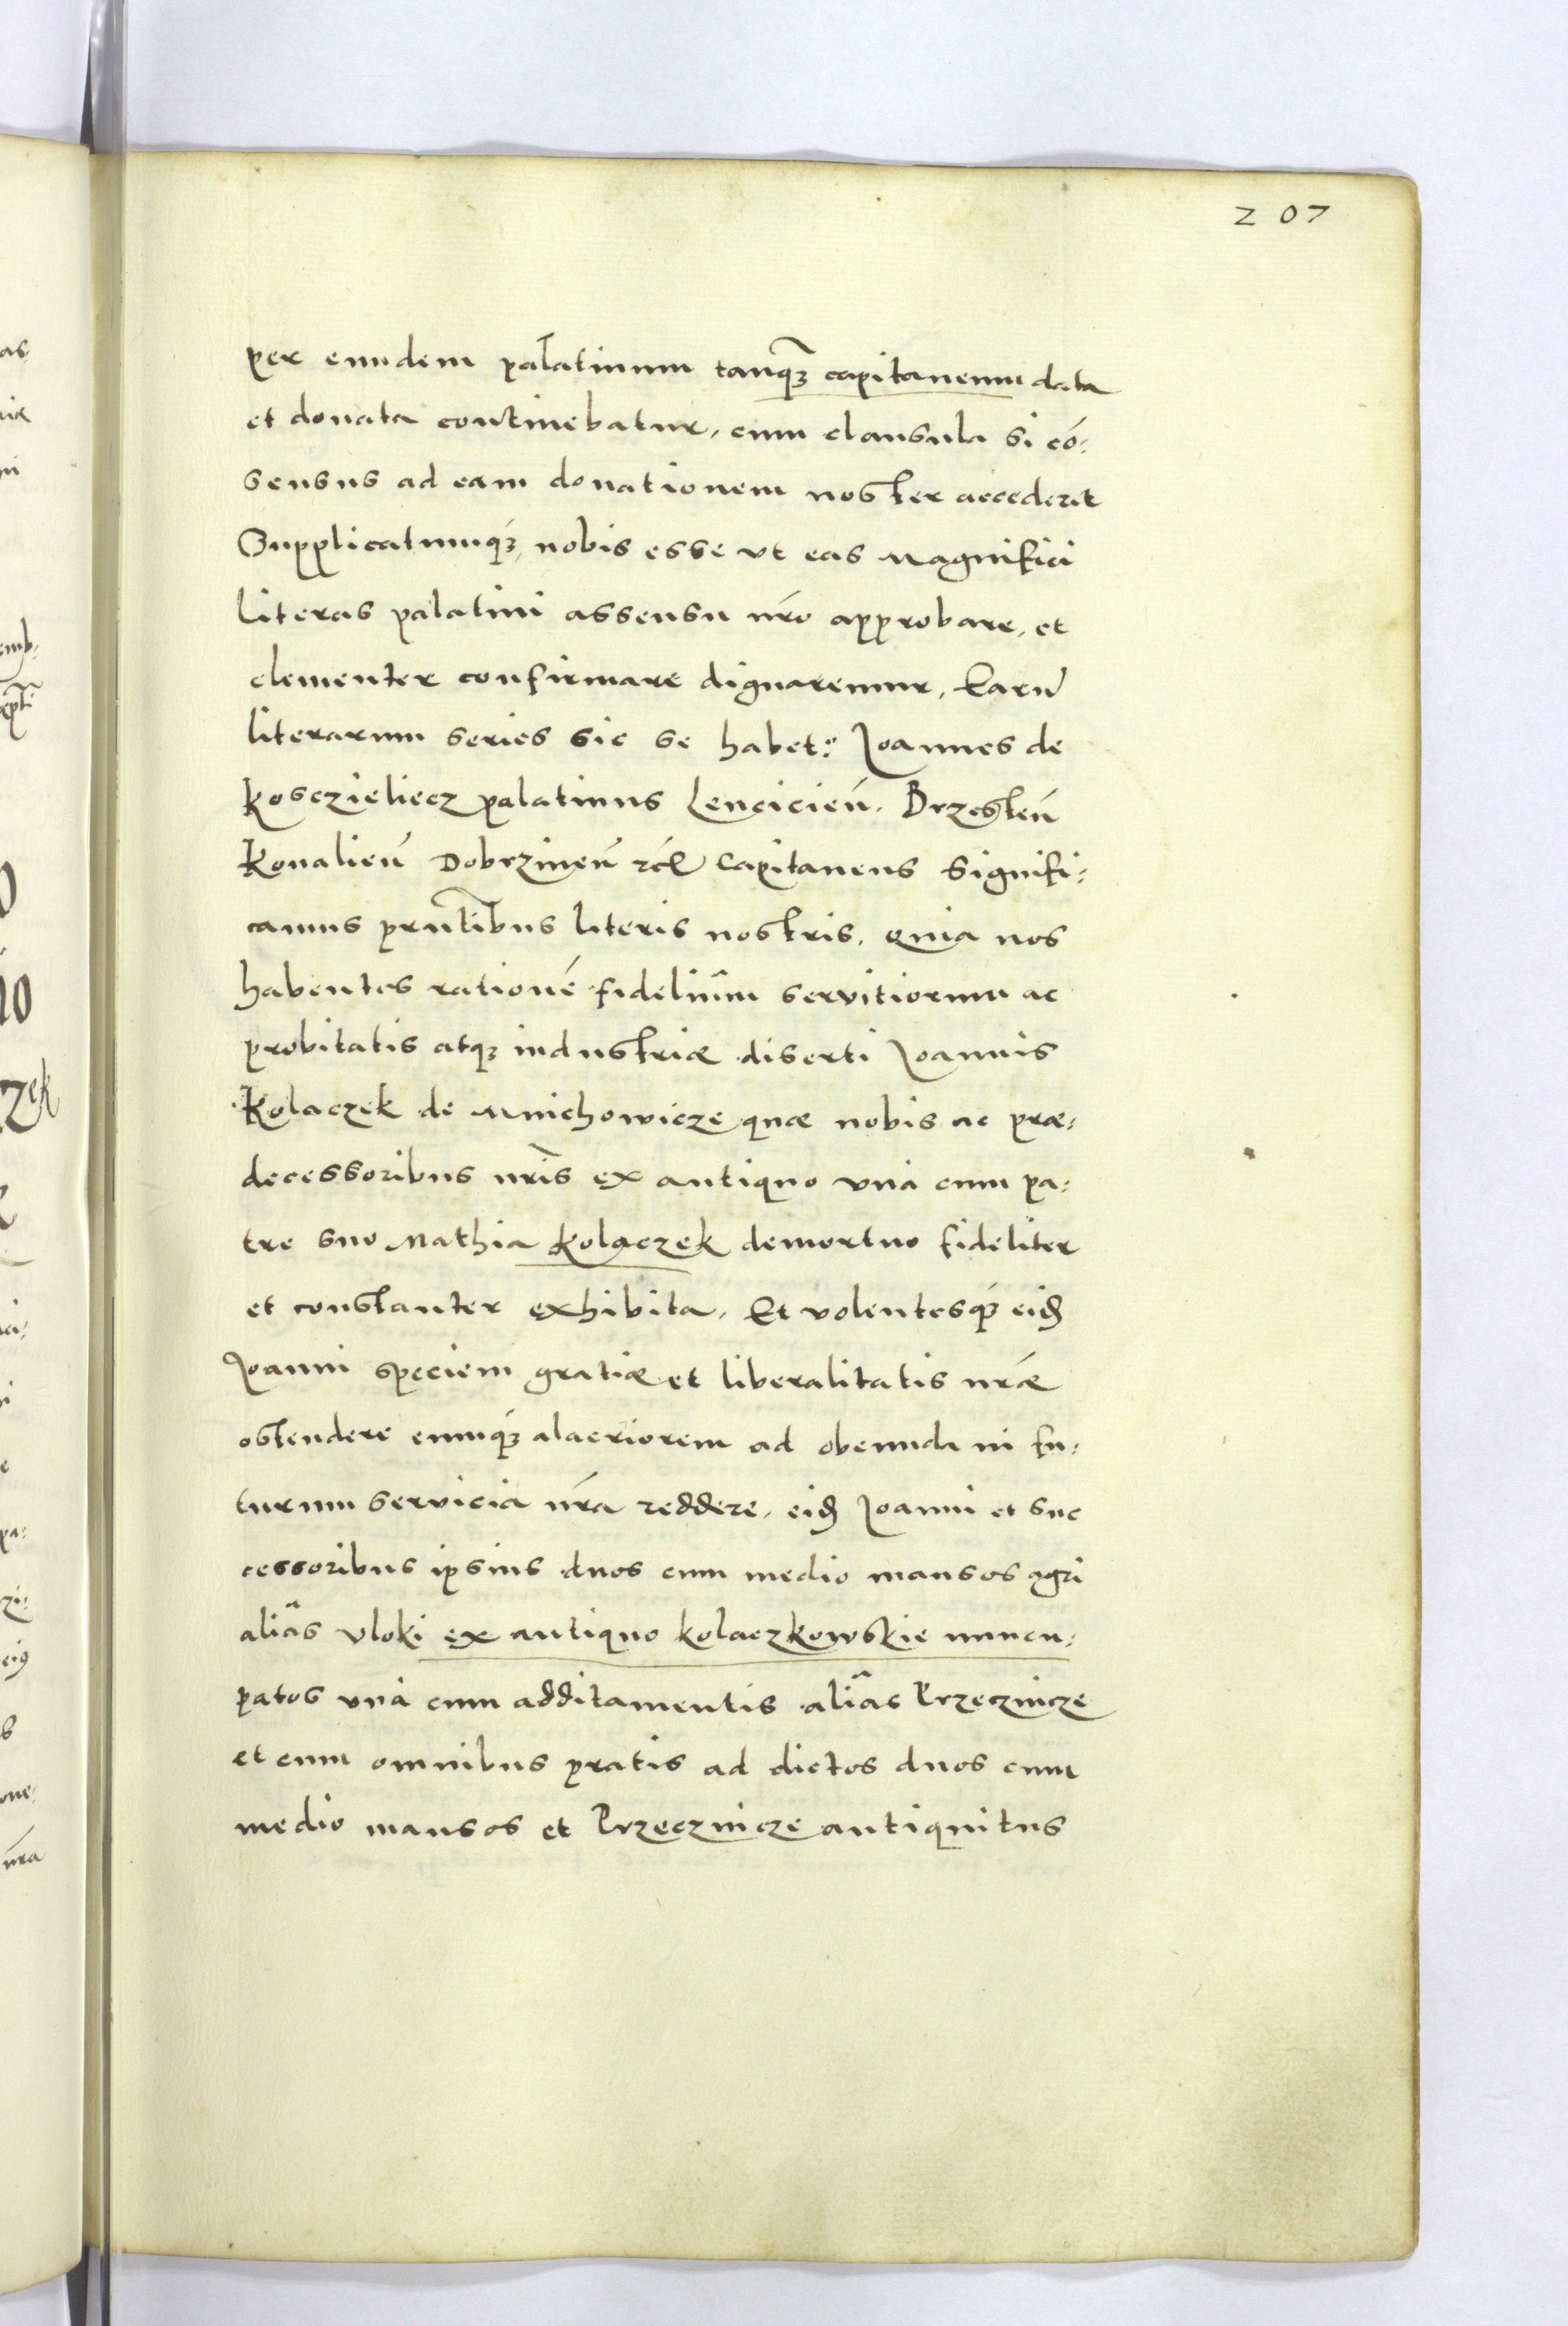 207
per eundem palatinum tanq̃ȝ capitaneum data
et donata continebatur, cum clausula si cõ:
sensus ad eam donationem noster accederet
Supplicatumqȝ nobis esse vt eas Magnifici
literas palatini assensu nr̃o approbare, et
clementer confirmare dignaremur, Earũ
literarum series sic se habet: Joannes de
Kosczieliecz palatinus Lencicień. Brzesteń
Konalień Dobrzineń zc̃ Capitaneus Signifi:
camus prñtibus literis nostris, quia nos
habentes rationẽ fidelium servitiorum ac
probitatis atqȝ industriæ diserti Joannis
Kolaczek de Mnichowicze quæ nobis ac præ:
decessoribus nr̃is ex antiquo vnà cum pa:
tre suo Mathia Kolaczek demortuo fideliter
et constanter exhibita, Et volentesqȝ eid̃
Joanni speciem gratiæ et liberalitatis nr̃æ
ostendere eumqȝ alacriorem ad obeunda in fu:
turum servicia nr̃a reddere, eid̃ Joanni et suc
cessoribus ipsius duos cum medio mansos agri
aliâs vloki ex antiquo kolaczkowskie nuncu:
patos vnà cum additamentis aliâs Przecznicze
et cum omnibus pratis ad dictos duos cum
medio mansos et Przecznicze antiquitus